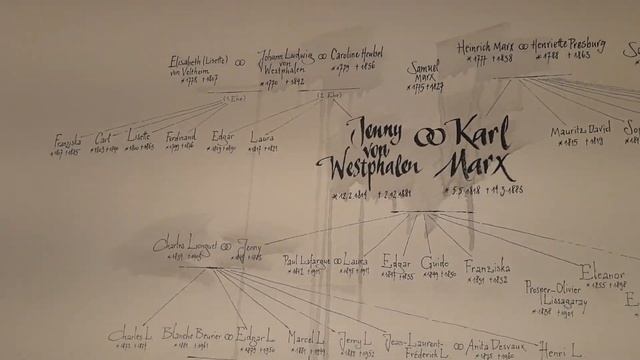 Elisabeth (Lisette) von Veltheim
Johann Ludwig von Westphalen
* 1770 + 1842
Caroline Heubel
* 1779 + 1856
Samuel Marx
* 1775 + 1827
Heinrich Marx
* 1777 + 1838
Henriette Presburg
* 1788 + 1863
(1. Ehe)
(2. Ehe)
Franziska
Carl
Lisette
Ferdinand
* 1799 + 1876
Edgar
Laura
* 1817 + 1821
Jenny
von
Westphalen
* 12.2.1814 + 2.12.1881
Karl
Marx
* 5.5.1818 + 14.3.1883
Mauritz David
* 1815 + 1819
Charles Longuet
Jenny
Paul Lafargue
* 1842 + 1911
Laura
* 1845 + 1911
Edgar
* 1847 + 1855
Guido
* 1849 + 1850
Franziska
* 1851 + 1852
Eleanor
* 1855 + 1898
Prosper-Olivier
Lissagaray
* 1838 + 1901
Charles L.
Blanche Beurier
Edgar L.
Marcel L.
Jenny L.
Jean-Laurent-
Frederick L.
Anita Desvaux
Henri L.